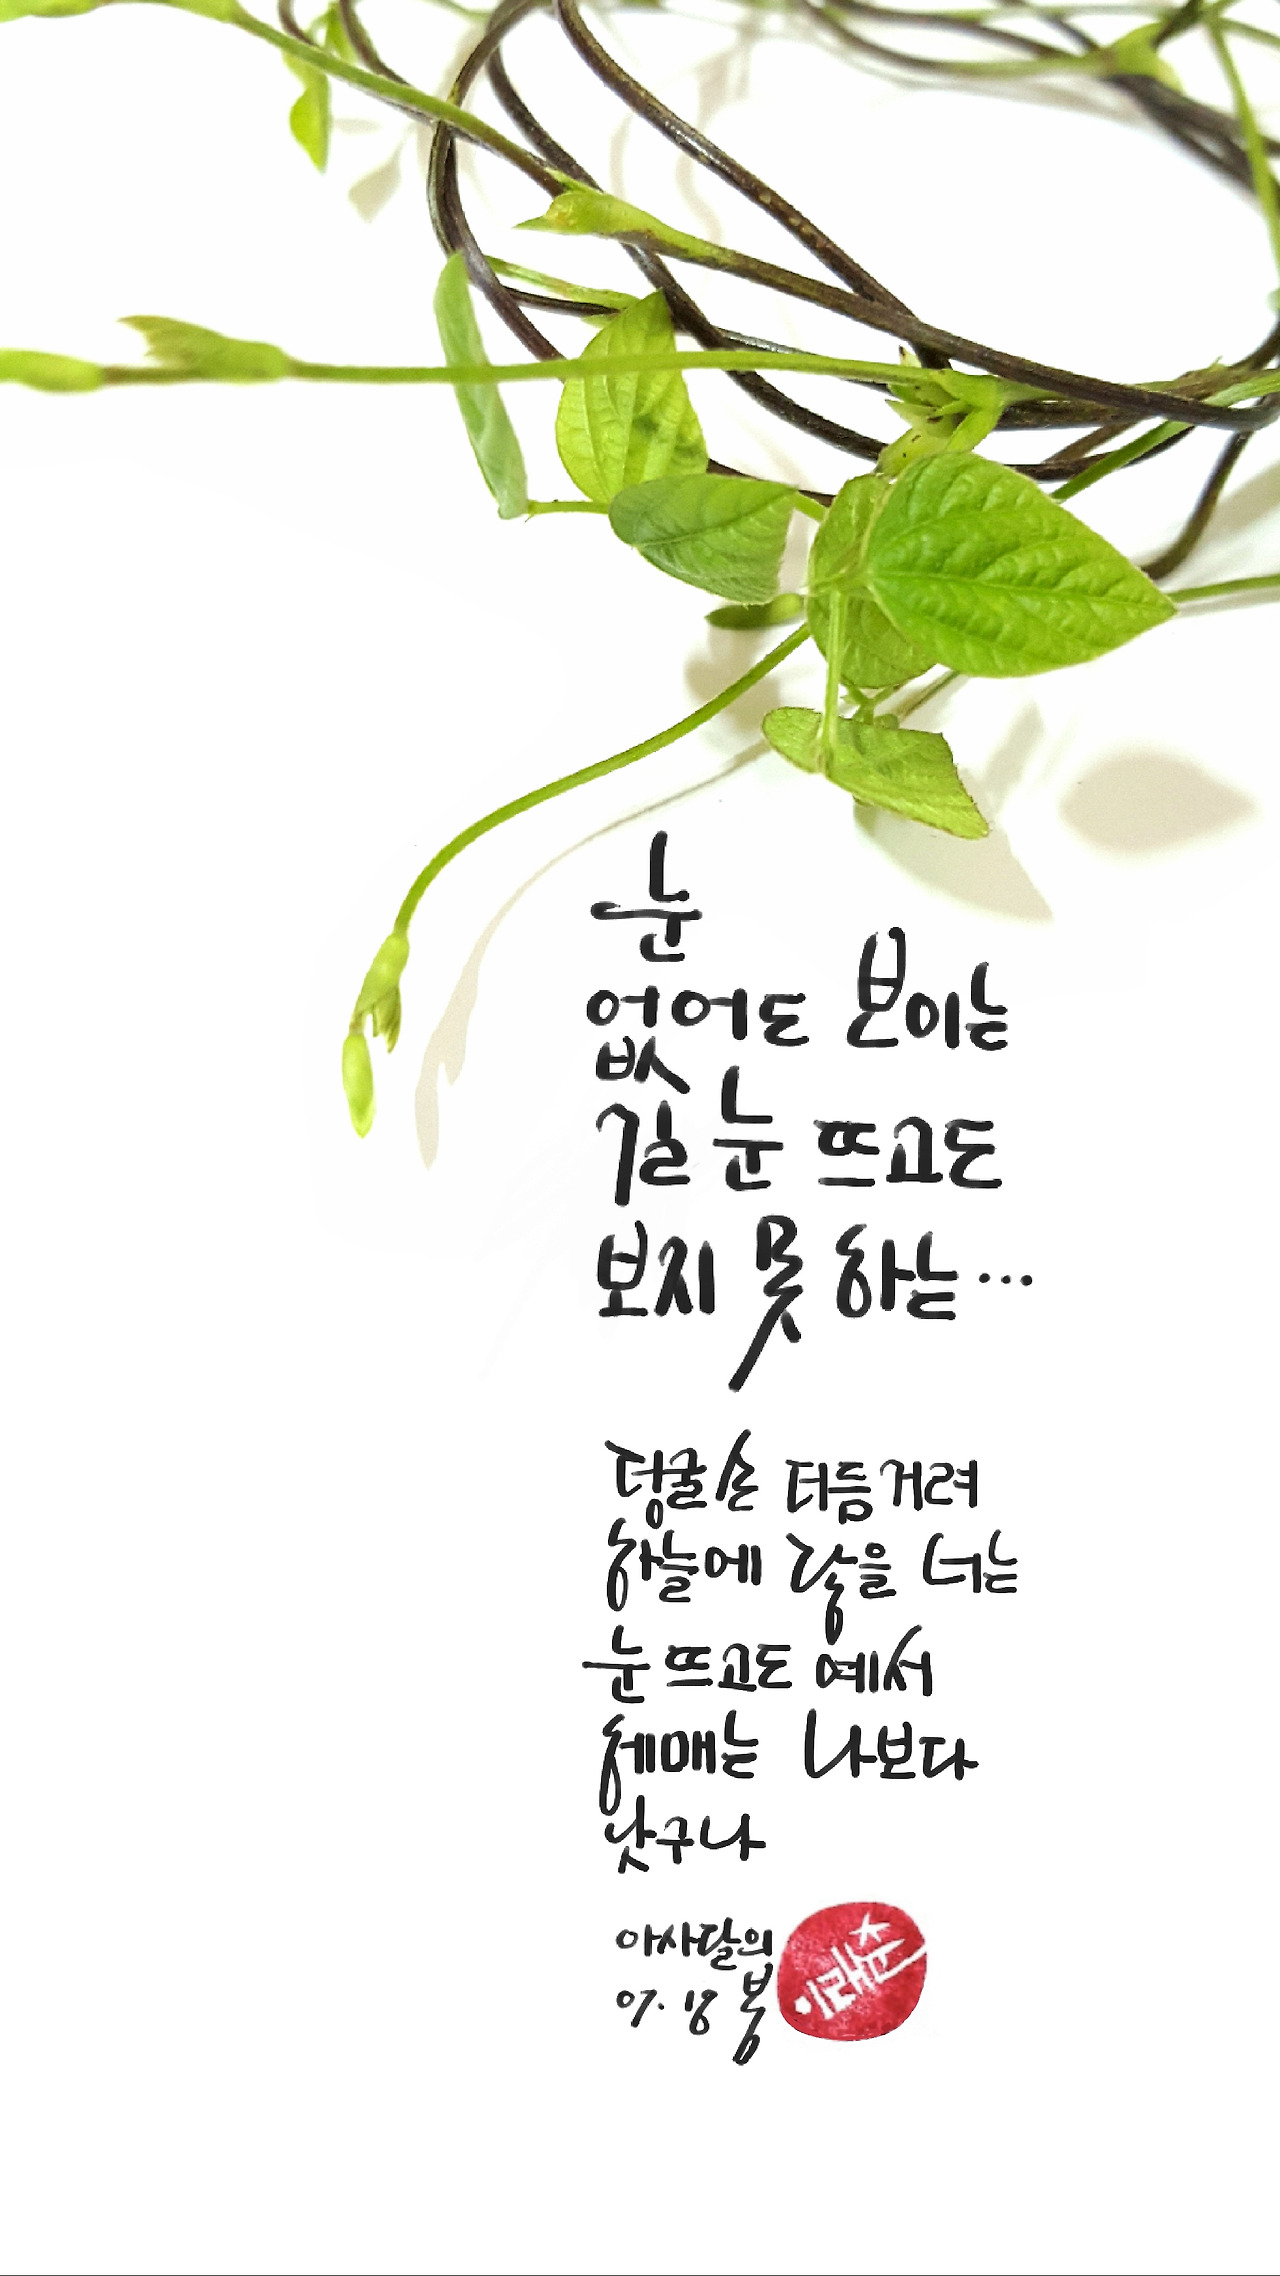 눈
없어도 보이는
길 눈 뜨고도
보지 못 하는...
덩굴손 더듬거려
하늘에 닿을 너는
눈 뜨고도 예서
헤매는 나보다
낫구나
아사달의
07. 18 봄
이래춘